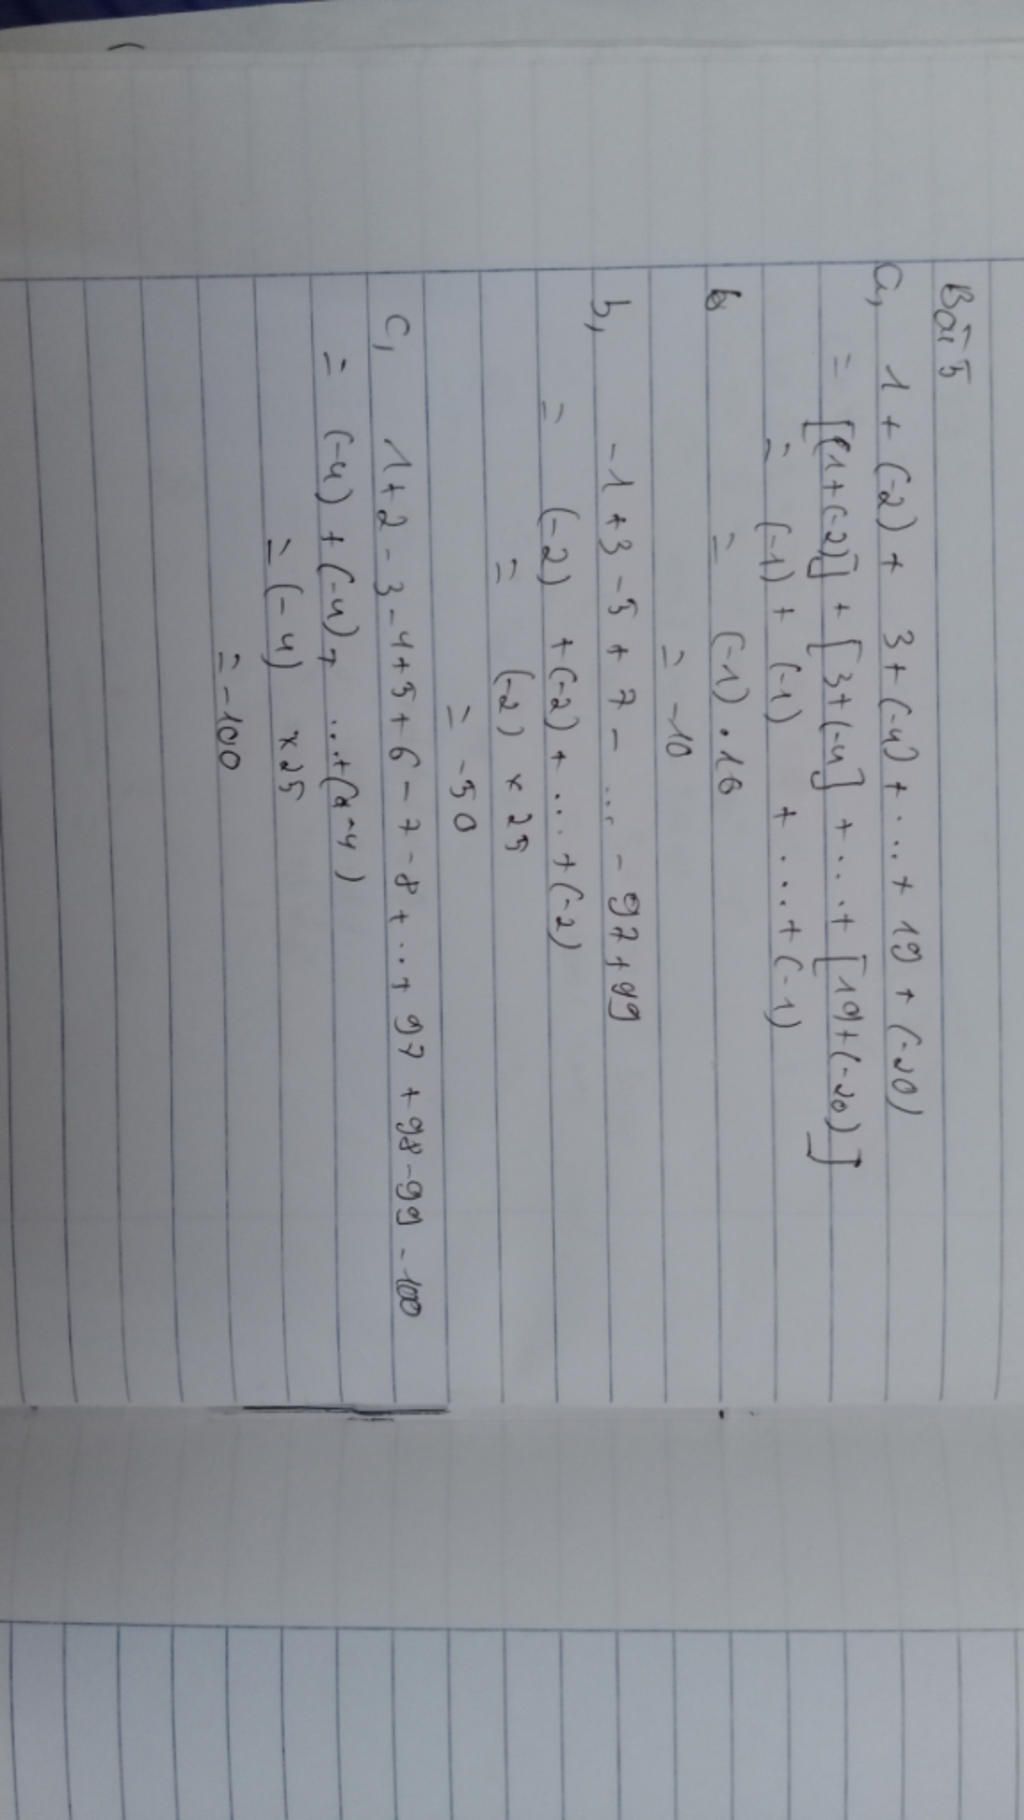 Bài 5
a, 1 + (-2) + 3 + (-4) + ... + 19 + (-20)
= [(1+(-2)] + [3+(-4] + ... + [19+(-20)]
= (-1) + (-1) + ... + (-1)
= (-1) . 10
= -10
b, -1 + 3 - 5 + 7 - ... - 97 + 99
= (-2) + (-2) + ... + (-2)
= (-2) × 25
= -50
c, 1 + 2 - 3 - 4 + 5 + 6 - 7 - 8 + ... + 97 + 98 - 99 - 100
= (-4) + (-4) + ... + (-4)
= (-4) × 25
= -100